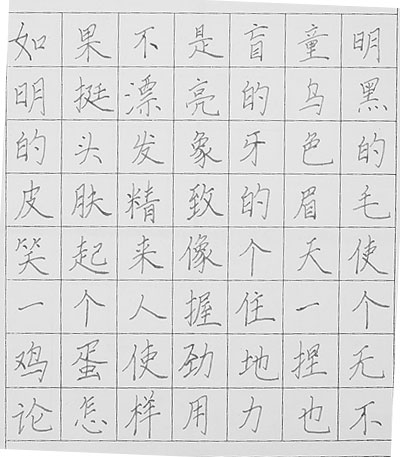 如果不是盲童明
明挺漂亮的乌黑
的头发象牙色的
皮肤精致的眉毛
笑起来像个天使
一个人握住一个
鸡蛋使劲地捏无
论怎样用力也不